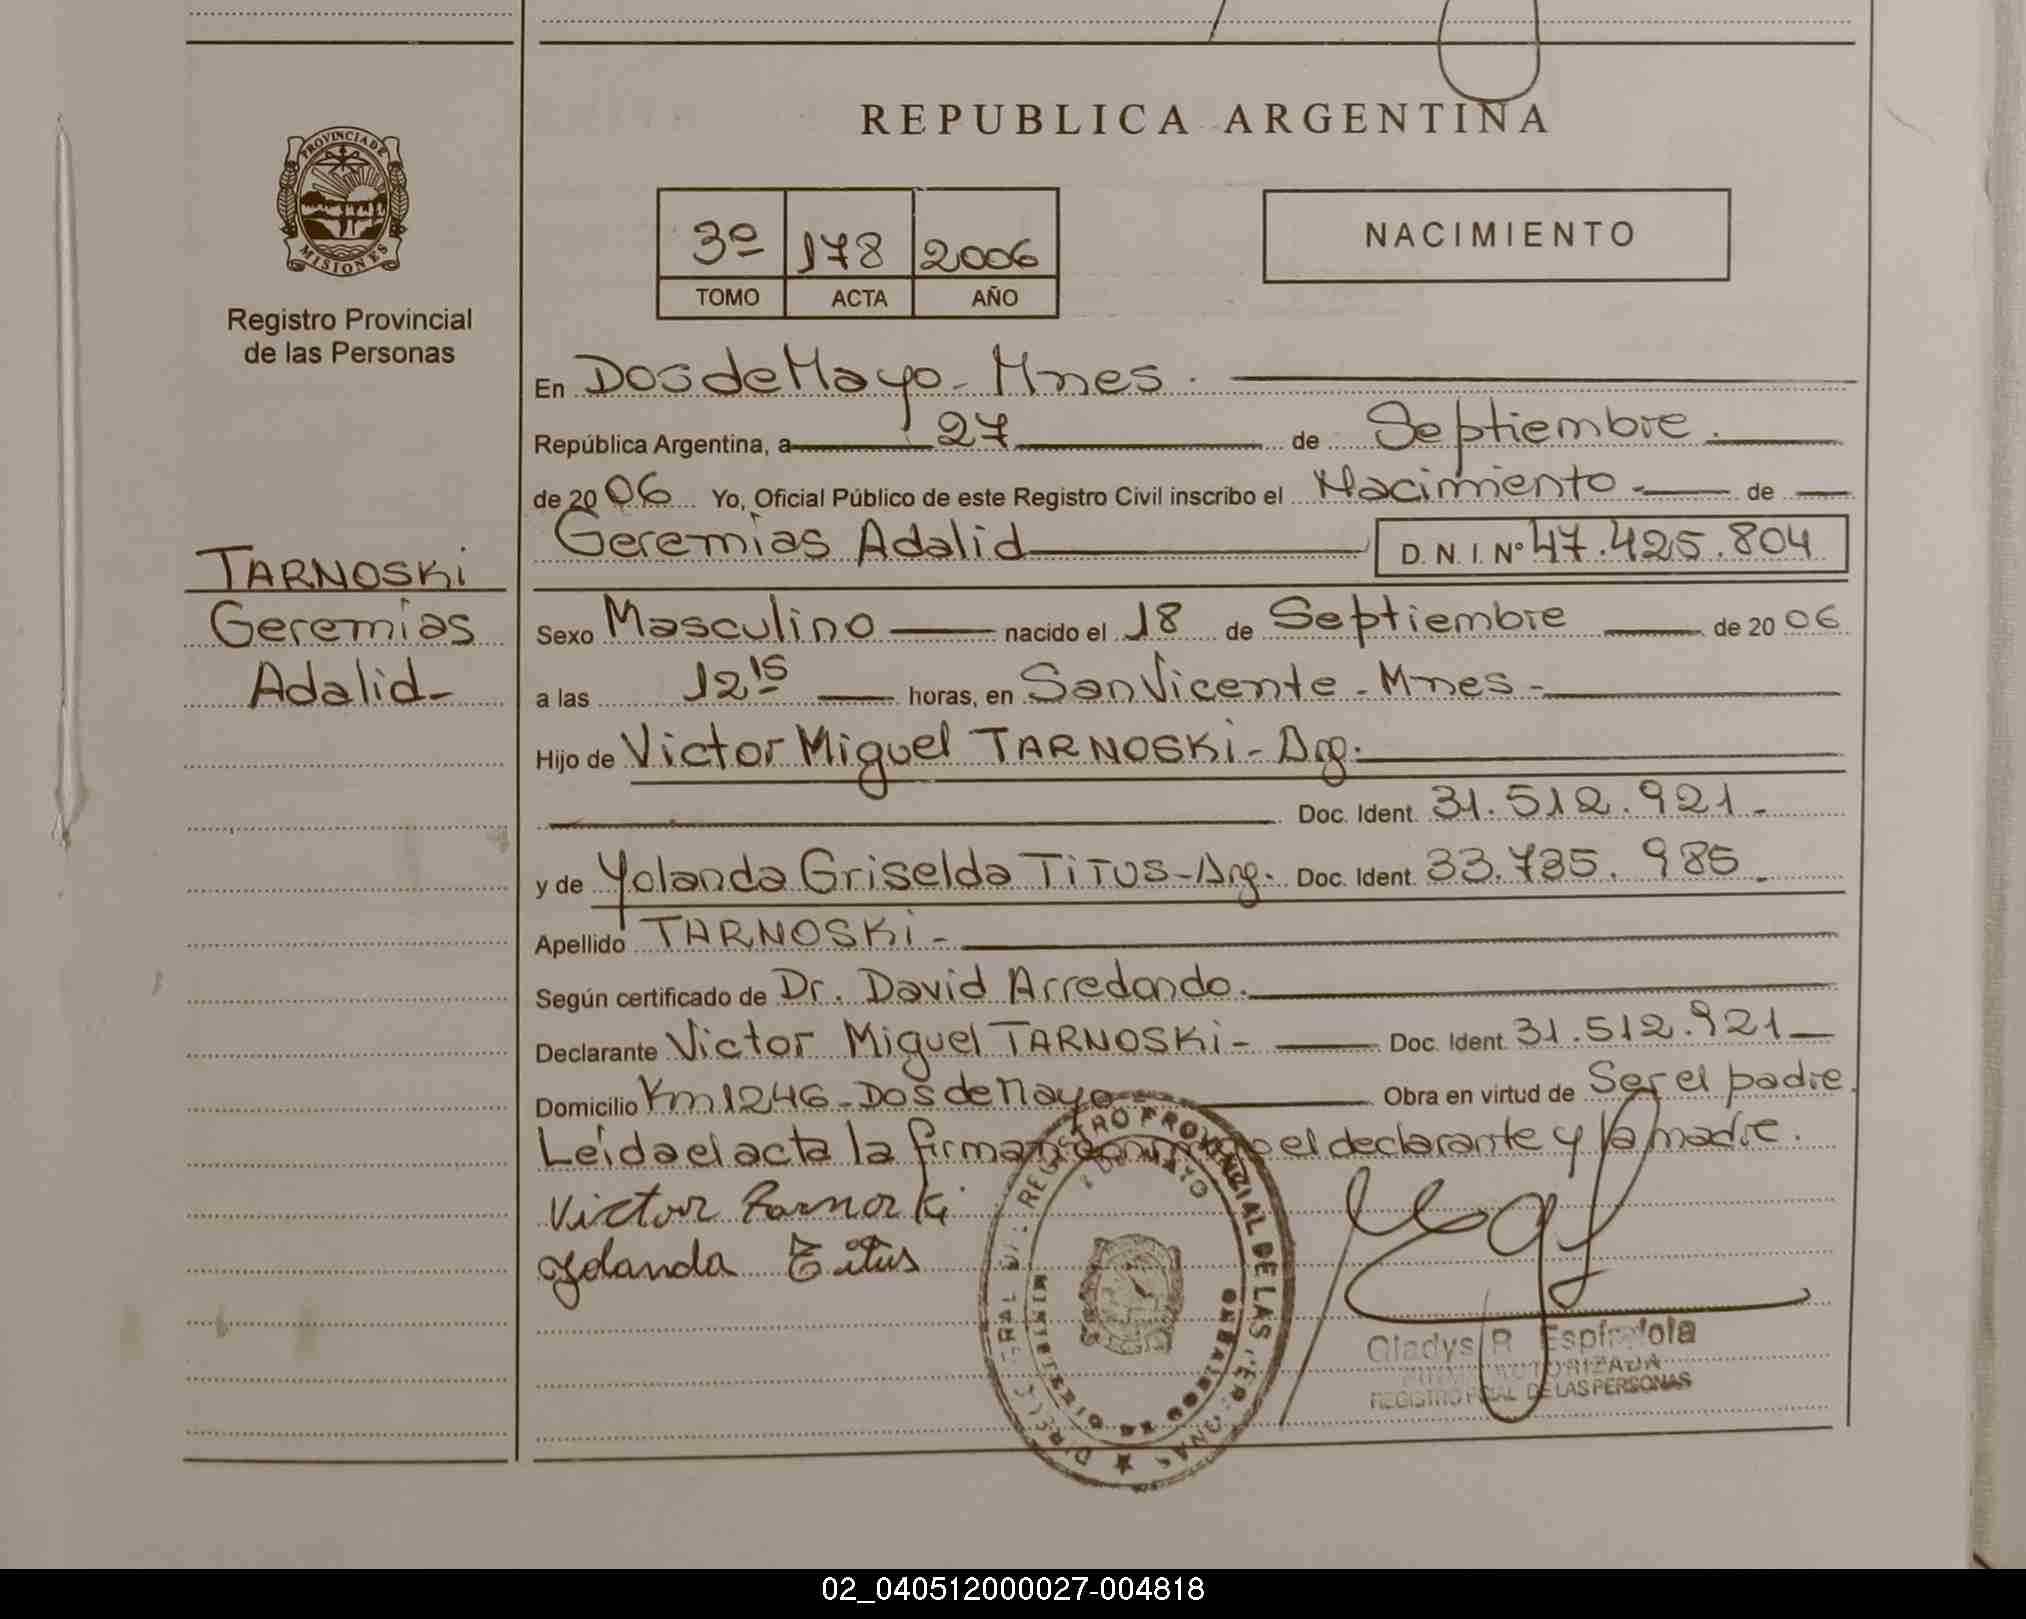 REPUBLICA ARGENTINA
PROVINCIA DE MISIONES
Registro Provincial
de las Personas
3º 178 2006
TOMO ACTA AÑO
NACIMIENTO
En Dos de Mayo - Mnes.
República Argentina, a 27 de Septiembre.
de 2006 Yo, Oficial Público de este Registro Civil inscribo el Nacimiento - de
Geremías Adalid D. N. I. Nº 47.425.804
TARNOSKi
Geremías
Adalid-
Sexo Masculino nacido el 18 de Septiembre de 2006
a las 12 15 horas, en San Vicente - Mnes -
Hijo de Victor Miguel TARNOSKi - Arg.
Doc. Ident. 31.512.921.-
y de Yolanda Griselda TiTUS - Arg. Doc. Ident. 33.735.985.-
Apellido TARNOSKi -
Según certificado de Dr. David Arredondo.
Declarante Victor Miguel TARNOSKi - Doc. Ident. 31.512.921
Domicilio Km 1246 - Dos de Mayo Obra en virtud de Ser el padre.
Leída el acta la firman el declarante y la madre.
Victor Tarnoski
Yolanda Titus
REGISTRO PROVINCIAL DE LAS PERSONAS
Gladys R. Espíndola
FIRMA AUTORIZADA
REGISTRO PCIAL DE LAS PERSONAS
02_040512000027-004818